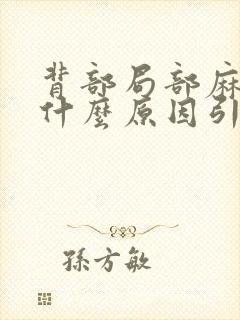 背部局部麻
什麼原因引
孫方敏